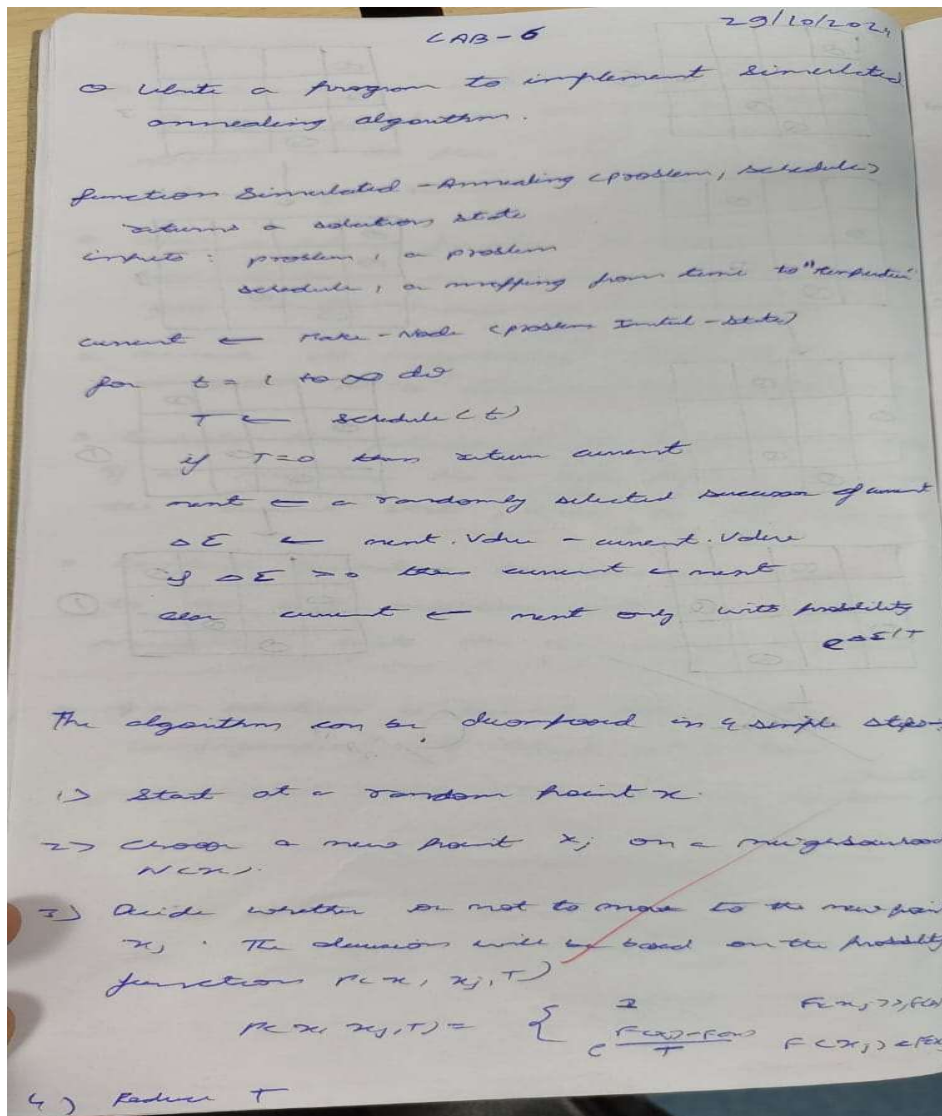 LAB-6
29/10/2024
Write a program to implement simulated
annealing algorithm.
function Simulated-Annealing (problem, schedule)
returns a solution state
inputs: problem, a problem
schedule, a mapping from time to "temperature"
current ← Make-Node (problem Initial-State)
for t = 1 to ∞ do
T ← schedule(t)
if T=0 then return current
next ← a randomly selected successor of current
ΔE ← next.Value - current.Value
if ΔE >0 then current ← next
else current ← next only with probability
e^ΔE/T
The algorithm can be decomposed in 4 simple steps-
1) Start at a random point x.
2) Choose a new point xj on a neighbourhood
N(x).
3) Decide whether or not to move to the new poin
xj. The decision will be based on the probability
function P(x, xj, T)
P(x, xj, T) = {
1
e
T
4) Reduce T